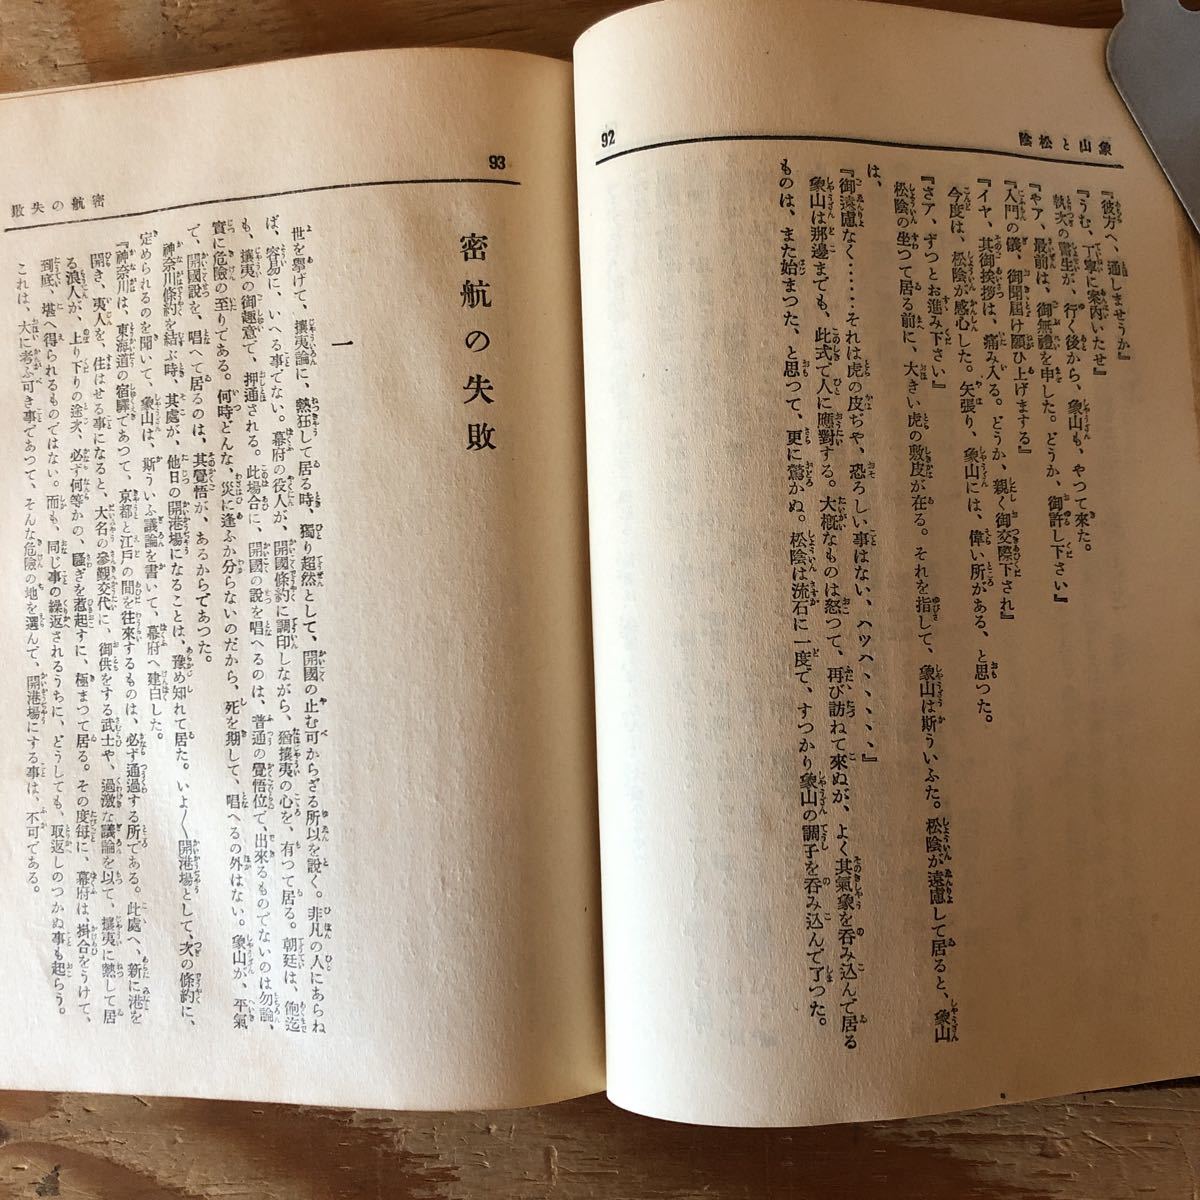 象山と松陰
92
『彼方へ、通しませうか』
『うむ、丁寧に案內いたせ』
執次の書生が、行く後から、象山も、やつて來た。
『やア、最前は、御無禮を申した。どうか、御許し下さい』
『入門の儀、御聞屆け願ひ上げまする』
『イヤ、其御挨拶は、痛み入る。どうか、親く御交際下され』
今度は、松陰が感心した。矢張り、象山には、偉い所がある、と思つた。
『さア、ずつとお進み下さい』
松陰の坐つて居る前に、大きい虎の敷皮が在る。それを指して、象山は斯ういふた。松陰が遠慮して居ると、象山
は、
『御遠慮なく……それは虎の皮ぢや、恐ろしい事はない、ハツハヽヽヽヽ』
象山は那邊までも、此式で人に應對する。大概なものは怒つて、再び訪ねて來ぬが、よく其氣象を吞み込んで居る
ものは、また始まつた、と思つて、更に驚かぬ。松陰は流石に一度で、すつかり象山の調子を吞み込んで了つた。
93
密航の失敗
密航の失敗
一
世を擧げて、攘夷論に、熱狂して居る時、獨り超然として、開國の止む可からざる所以を說く。非凡の人にあらね
ば、容易に、いへる事でない。幕府の役人が、開國條約に調印しながら、猶攘夷の心を、有つて居る。朝廷は、飽迄
も、攘夷の御趣意で、押通される。此場合に、開國の說を唱へるのは、普通の覺悟位で、出來るものでないのは勿論、
實に危險の至りである。何時どんな、災に逢ふか分らないのだから、死を期して、唱へるの外はない。象山が、平氣
で、開國說を、唱へて居るのは、其覺悟が、あるからであつた。
神奈川條約を結ぶ時、其處が、他日の開港場になることは、豫め知れて居た。いよ〱開港場として、次の條約に、
定められるのを聞いて、象山は、斯ういふ議論を書いて、幕府へ建白した。
『神奈川は、東海道の宿驛であつて、京都と江戶の間を往來するものは、必ず通過する所である。此處へ、新に港を
開き、夷人を、住はせる事になると、大名の參覲交代に、御供をする武士や、過激な議論を以て、攘夷に熱して居
る浪人が、上り下りの途次、必ず何等かの、騷ぎを惹起すに、極まつて居る。その度每に、幕府は、掛合をうけて、
到底、堪へ得られるものではない。而も、同じ事の繰返されるうちに、どうしても、取返しのつかぬ事も起らう。
これは、大に考ふ可き事であつて、そんな危險の地を選んで、開港場にする事は、不可である。